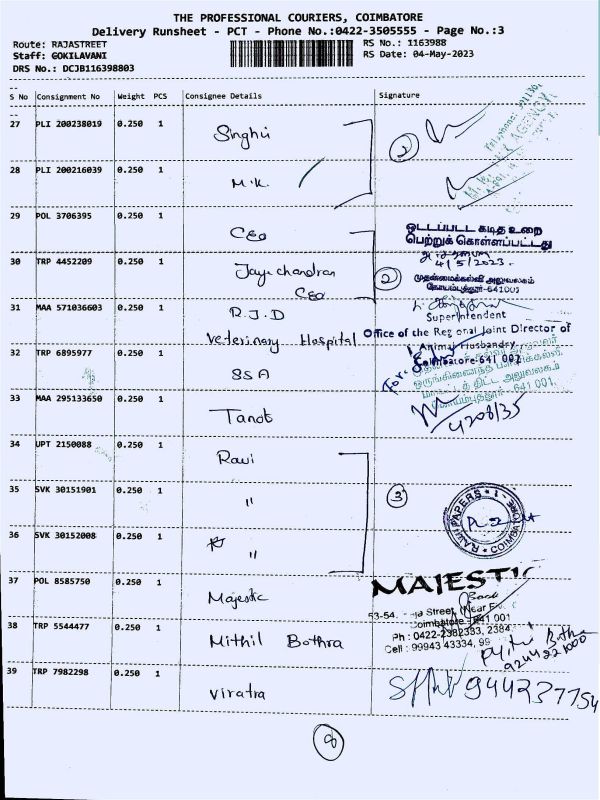 THE PROFESSIONAL COURIERS, COIMBATORE
Delivery Runsheet - PCT - Phone No.:0422-3505555 - Page No.:3
Route: RAJASTREET
RS No.: 1163988
Staff: GOKILAVANI
RS Date: 04-May-2023
DRS No.: DCJB116398803
S No Consignment No Weight PCS Consignee Details Signature
27 PLI 200238019 0.250 1 Singhvi
28 PLI 200216039 0.250 1 M.K.
2
29 POL 3706395 0.250 1 CEO
ஒட்டப்பட்ட கடித உறை
பெற்றுக் கொள்ளப்பட்டது
4/5/2023.
30 TRP 4452209 0.250 1 Jaya chandran
CEO
2
முதன்மைக்கல்வி அலுவலகம்
கோயம்புத்தூர்-641001
31 MAA 571036603 0.250 1 R.J.D
Veterinary Hospital
Superintendent
Office of the Regional Joint Director of
Animal Husbandry
Coimbatore-641 001
32 TRP 6895977 0.250 1 SSA
For:
33 MAA 295133650 0.250 1 Tanot
34 UPT 2150088 0.250 1 Ravi
35 SVK 30151901 0.250 1 "
3
RAVI PAPERS * COIMBATORE-1 *
36 SVK 30152008 0.250 1 "
37 POL 8585750 0.250 1 Majestic
MAJESTIC
53-54, Street, (Near
Coimbatore - 641 001
Ph : 0422-2382333, 2384
Cell : 99943 43334, 99
38 TRP 5544477 0.250 1 Mithil Bothra
9244221000
39 TRP 7982298 0.250 1 Viratra
944237754
8